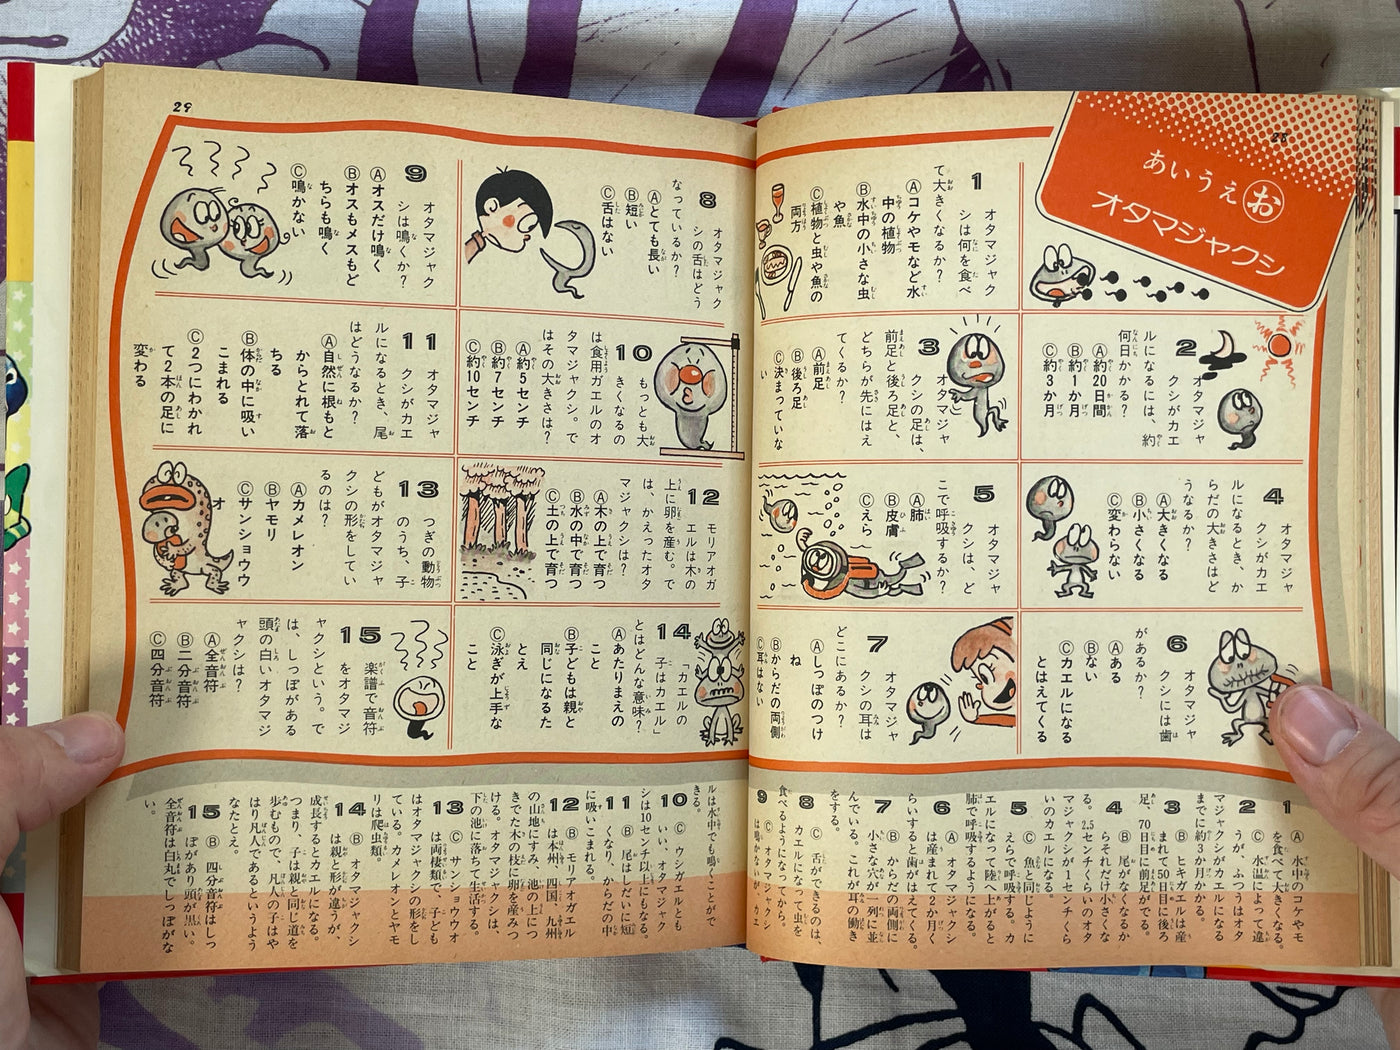 28
あいうえお
オタマジャクシ
1 オタマジャク
シは何を食べ
て大きくなるか？
Ⓐコケやモなど水
中の植物
Ⓑ水中の小さな虫
や魚
Ⓒ植物と虫や魚の
両方
2 オタマジャ
クシがカエ
ルになるには、約
何日かかる？
Ⓐ約20日間
Ⓑ約1か月
Ⓒ約3か月
3 オタマジャ
クシの足は、
前足と後ろ足と、
どちらが先にはえ
てくるか？
Ⓐ前足
Ⓑ後ろ足
Ⓒ決まっていな
い
4 オタマジャ
クシがカエ
ルになるとき、か
らだの大きさはど
うなるか？
Ⓐ大きくなる
Ⓑ小さくなる
Ⓒ変わらない
5 オタマジャ
クシは、ど
こで呼吸するか？
Ⓐ肺
Ⓑ皮膚
Ⓒえら
6 オタマジャ
クシには歯
があるか？
Ⓐある
Ⓑない
Ⓒカエルになる
とはえてくる
7 オタマジャ
クシの耳は
どこにあるか？
Ⓐしっぽのつけ
ね
Ⓑからだの両側
Ⓒ耳はない
1 Ⓐ 水中のコケやモ
を食べて大きくなる。
2 Ⓒ 水温によって違
うが、ふつうはオタ
マジャクシがカエルになる
までに約3か月かかる。
3 Ⓑ ヒキガエルは産
まれて50日目に後ろ
足、70日目に前足がでる。
4 Ⓑ 尾がなくなるか
らそれだけ小さくな
る。2.5センチくらいのオタ
マジャクシが1センチくら
いのカエルになる。
5 Ⓒ 魚と同じように
えらで呼吸する。カ
エルになって陸へ上がると
肺で呼吸するようになる。
6 Ⓐ オタマジャクシ
は産まれて2か月く
らいすると歯がはえてくる。
7 Ⓑ からだの両側に
小さな穴が一列に並
んでいる。これが耳の働き
をする。
8 Ⓒ 舌ができるのは、
カエルになって虫を
食べるようになってから。
9 Ⓒ オタマジャクシ
は鳴かないが、カエ
29
8 オタマジャク
シの舌はどう
なっているか？
Ⓐとても長い
Ⓑ短い
Ⓒ舌はない
9 オタマジャク
シは鳴くか？
Ⓐオスだけ鳴く
Ⓑオスもメスもど
ちらも鳴く
Ⓒ鳴かない
10 もっとも大
きくなるの
は食用ガエルのオ
タマジャクシ。で
はその大きさは？
Ⓐ約5センチ
Ⓑ約7センチ
Ⓒ約10センチ
11 オタマジャ
クシがカエ
ルになるとき、尾
はどうなるか？
Ⓐ自然に根もと
からとれて落
ちる
Ⓑ体の中に吸い
こまれる
Ⓒ2つにわかれ
て2本の足に
変わる
12 モリアオガ
エルは木の
上に卵を産む。で
は、かえったオタ
マジャクシは？
Ⓐ木の上で育つ
Ⓑ水の中で育つ
Ⓒ土の上で育つ
13 つぎの動物
のうち、子
どもがオタマジャ
クシの形をしてい
るのは？
Ⓐカメレオン
Ⓑヤモリ
Ⓒサンショウウ
オ
14 「カエルの
子はカエル」
とはどんな意味？
Ⓐあたりまえの
こと
Ⓑ子どもは親と
同じになるた
とえ
Ⓒ泳ぎが上手な
こと
15 楽譜で音符
をオタマジ
ャクシという。で
は、しっぽがある
頭の白いオタマジ
ャクシは？
Ⓐ全音符
Ⓑ二分音符
Ⓒ四分音符
ルは水中でも鳴くことがで
きる。
10 Ⓒ ウシガエルとも
いい、オタマジャク
シは10センチ以上にもなる。
11 Ⓑ 尾はしだいに短
くなり、からだの中
に吸いこまれる。
12 Ⓑ モリアオガエル
は本州、四国、九州
の山地にすみ、池の上につ
きでた木の枝に卵を産みつ
ける。オタマジャクシは、
下の池に落ちて生活する。
13 Ⓒ サンショウウオ
は両棲類で、子ども
はオタマジャクシの形をし
ている。カメレオンとヤモ
リは爬虫類。
14 Ⓑ オタマジャクシ
は親と形が違うが、
成長するとカエルになる。
つまり、子は親と同じ道を
歩むもので、凡人の子はや
はり凡人であるというよう
なたとえ。
15 Ⓑ 四分音符はしっ
ぽがあり頭が黒い。
全音符は白丸でしっぽがな
い。